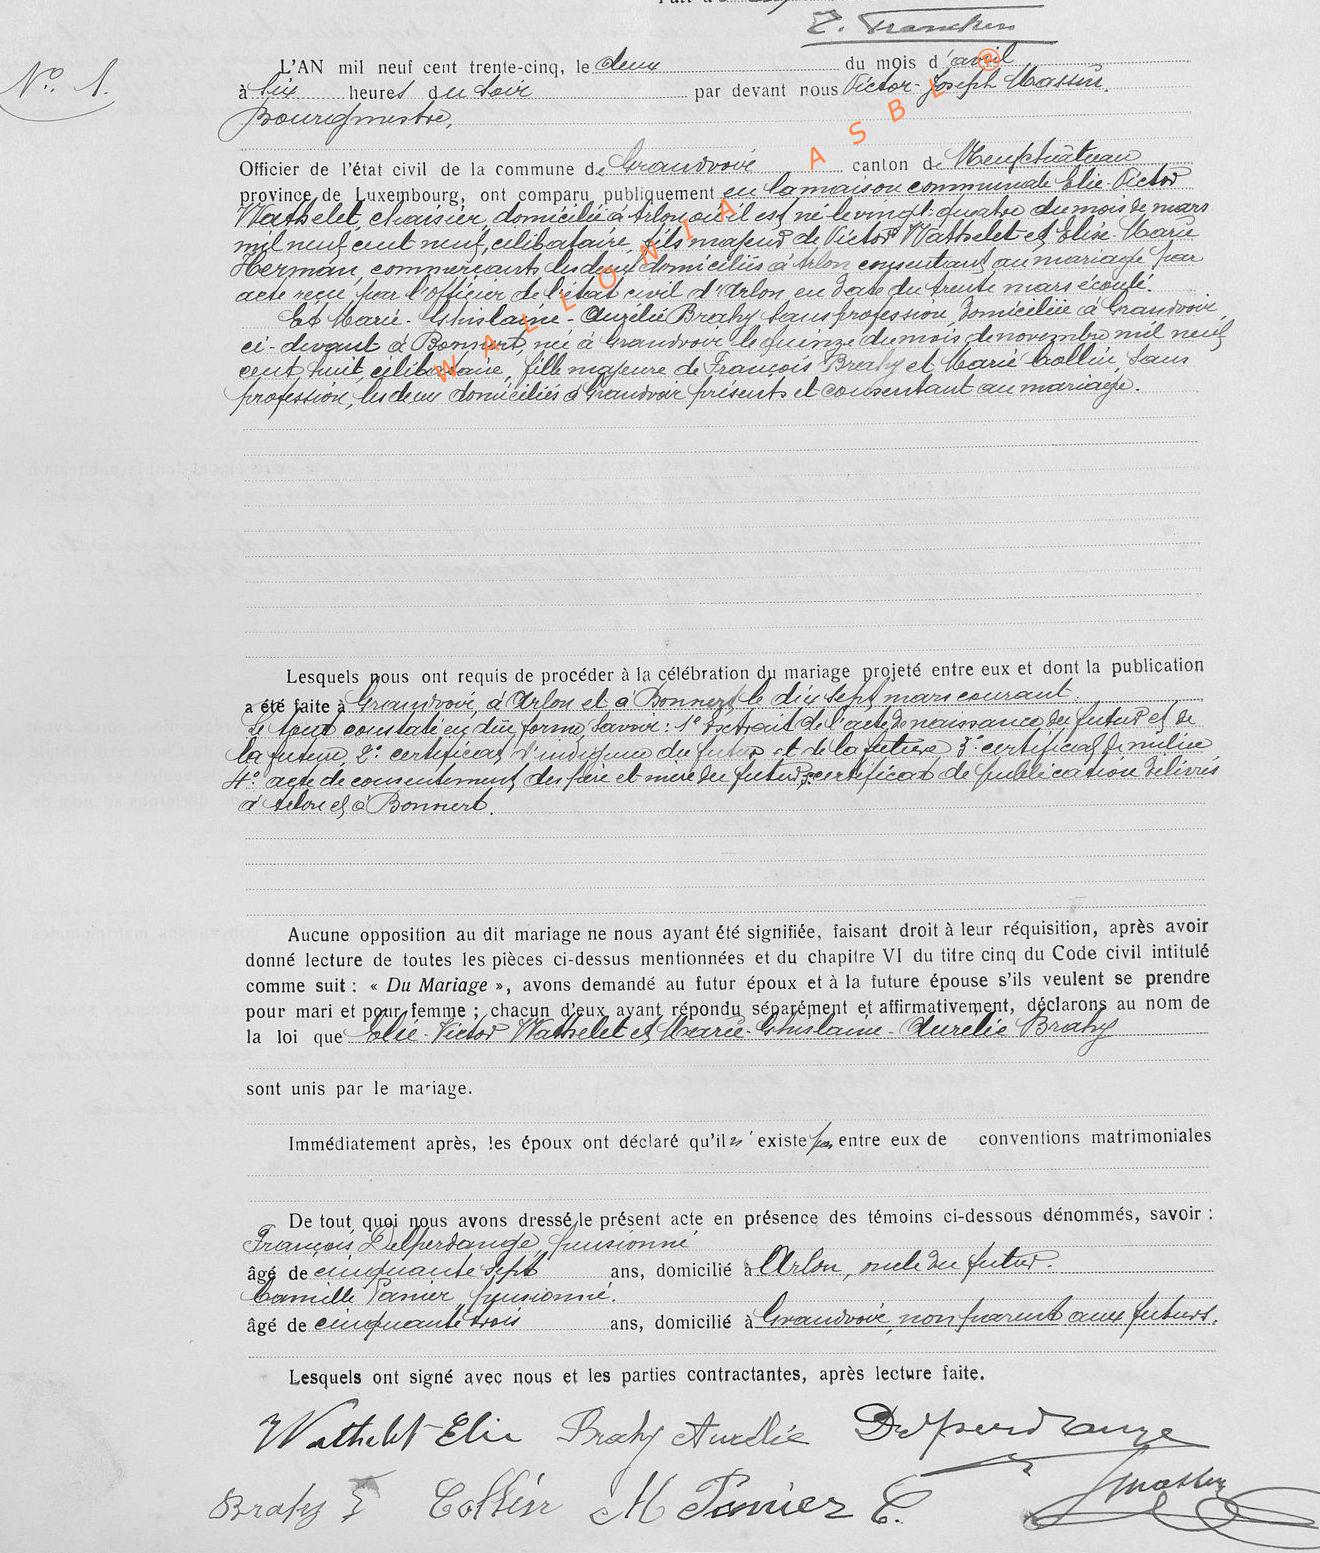 Z. Francken
N° 1.
L'AN mil neuf cent trente-cinq, le deux du mois d'avril
à six heures du soir par devant nous Victor-Joseph Massin,
Bourgmestre,
Officier de l'état civil de la commune de Grandvoir canton de Neufchâteau
province de Luxembourg, ont comparu publiquement en la maison communale Elie-Victor
Wathelet, chaisier, domicilié à Arlon où il est né le vingt-quatre du mois de mars
mil neuf cent neuf, célibataire, fils majeur de Victor Wathelet et Elise-Marie
Herman, commerçants les deux domiciliés à Arlon consentant au mariage par
acte reçu par l'officier de l'état civil d'Arlon en date du trente mars écoulé.
Et Marie-Ghislaine-Aurélie Brahy sans profession, domiciliée à Grandvoir,
ci-devant à Bonnert, née à Grandvoir le quinze du mois de novembre mil neuf
cent huit, célibataire, fille majeure de François Brahy et Marie Collin, sans
profession, les deux domiciliés à Grandvoir présents et consentant au mariage.
WALLONIA ASBL ®
Lesquels nous ont requis de procéder à la célébration du mariage projeté entre eux et dont la publication
a été faite à Grandvoir, à Arlon et à Bonnert, le dix sept mars courant.
Le tout constaté en due forme, savoir: 1° extrait de l'acte de naissance du futur et de
la future, 2° certificat d'indigène du futur et de la future 3° certificat de milice
4° acte de consentement des père et mère du futur, certificat de publication délivrés
à Arlon et à Bonnert.
Aucune opposition au dit mariage ne nous ayant été signifiée, faisant droit à leur réquisition, après avoir
donné lecture de toutes les pièces ci-dessus mentionnées et du chapitre VI du titre cinq du Code civil intitulé
comme suit : « Du Mariage », avons demandé au futur époux et à la future épouse s'ils veulent se prendre
pour mari et pour femme ; chacun d'eux ayant répondu séparément et affirmativement, déclarons au nom de
la loi que Elie-Victor Wathelet et Marie-Ghislaine-Aurélie Brahy
sont unis par le mariage.
Immédiatement après, les époux ont déclaré qu'il n'existe pas entre eux de conventions matrimoniales
De tout quoi nous avons dressé le présent acte en présence des témoins ci-dessous dénommés, savoir :
François Delperdange, pensionné
âgé de cinquante sept ans, domicilié à Arlon, oncle du futur.
Camille Panier, pensionné.
âgé de cinquante trois ans, domicilié à Grandvoir, non parent aux futurs.
Lesquels ont signé avec nous et les parties contractantes, après lecture faite.
Wathelet Elie Brahy Aurélie Delperdange
Brahy F Collin M Panier C. J Massin